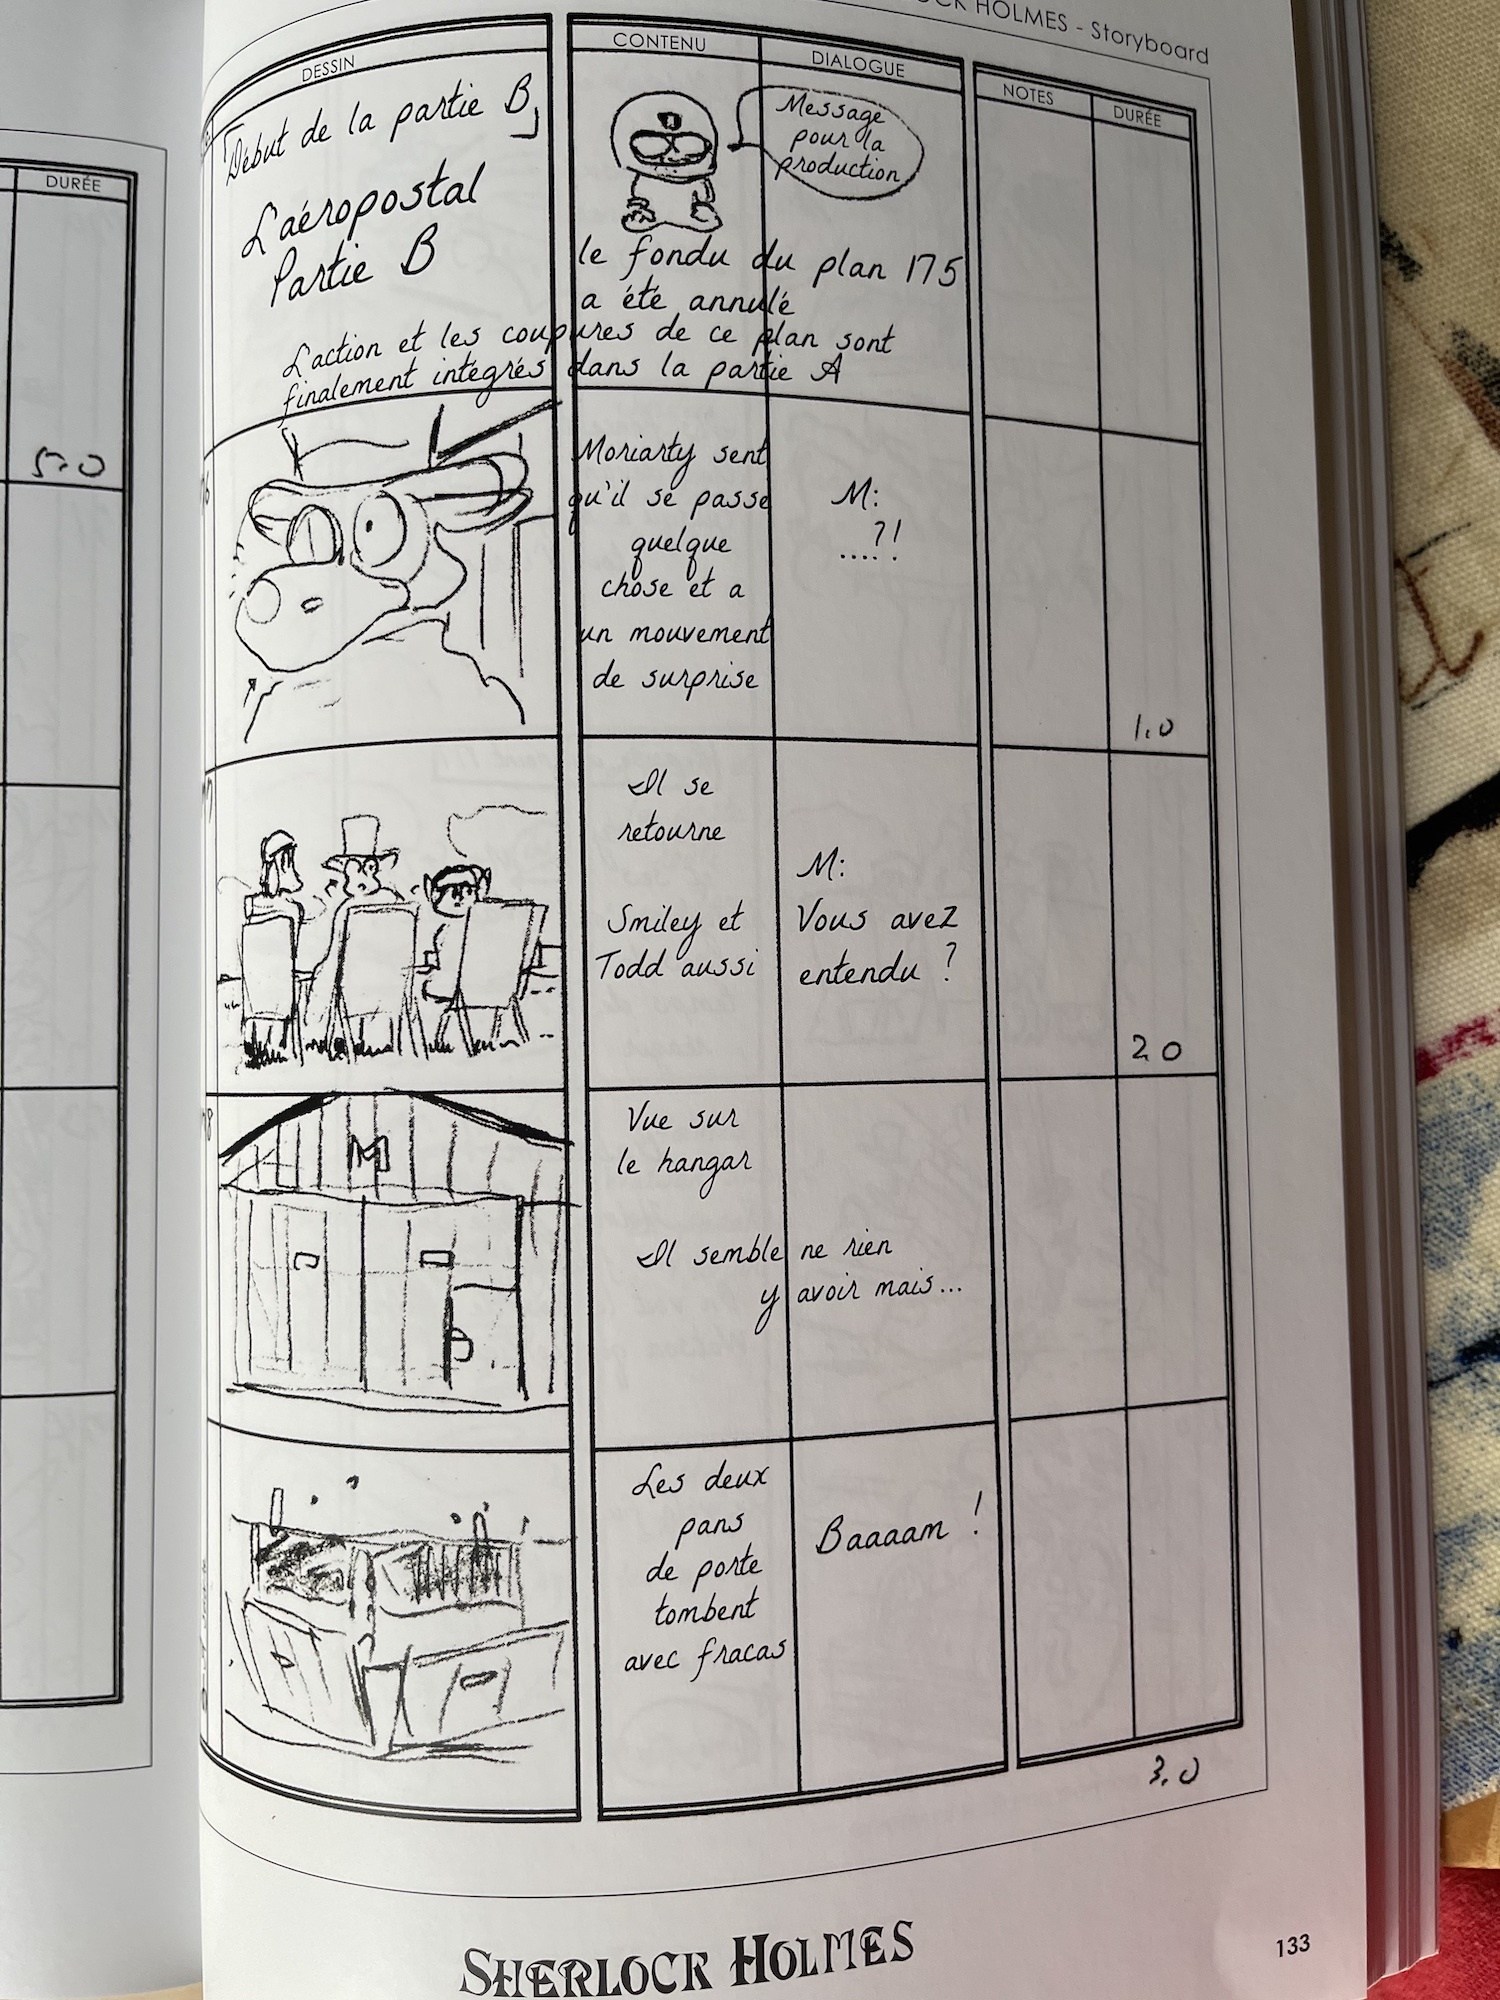 DURÉE
5.0
OCK HOLMES - Storyboard
DESSIN
CONTENU
DIALOGUE
NOTES
DURÉE
「Début de la partie B」
L'aéropostal
Partie B
Message
pour la
production
le fondu du plan 175
a été annulé
L'action et les coupures de ce plan sont
finalement intégrés dans la partie A
Moriarty sent
qu'il se passe
quelque
chose et a
un mouvement
de surprise
M:
....?!
1.0
Il se
retourne
Smiley et
Todd aussi
M:
Vous avez
entendu ?
2.0
M
Vue sur
le hangar
Il semble ne rien
y avoir mais...
Les deux
pans
de porte
tombent
avec fracas
Baaaam !
3.0
SHERLOCK HOLMES
133